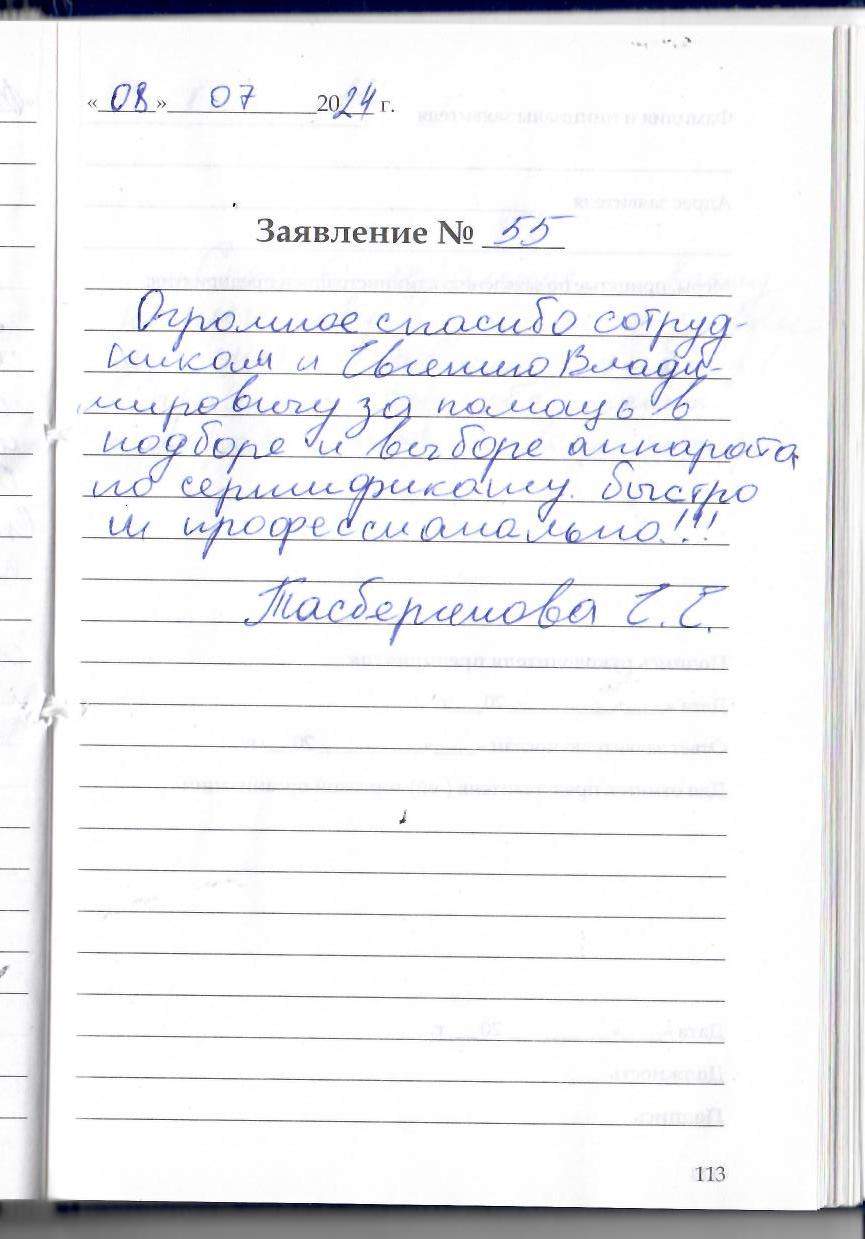 «08» 07 2024 г.
Заявление № 55
Огромное спасибо сотруд-
никам и Евгению Влади-
мировичу за помощь в
подборе и выборе аппарата
по сертификату. Быстро
и профессионально!!!
Е.Е.
113